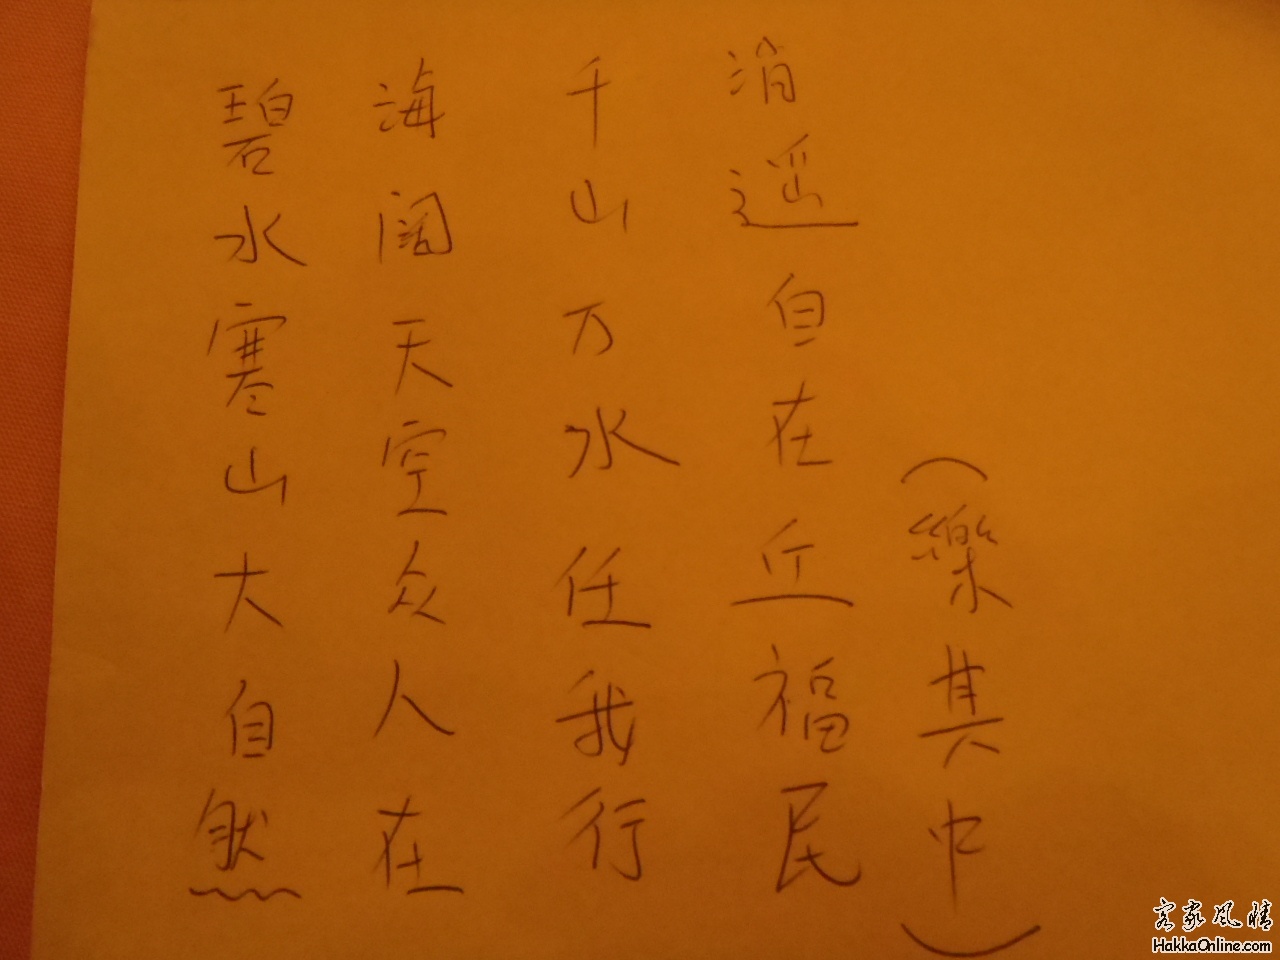 碧水寒山大自然
海阔天空众人在
千山万水任我行
消遥自在丘福民
(樂其中)
客家风情
HakkaOnline.com